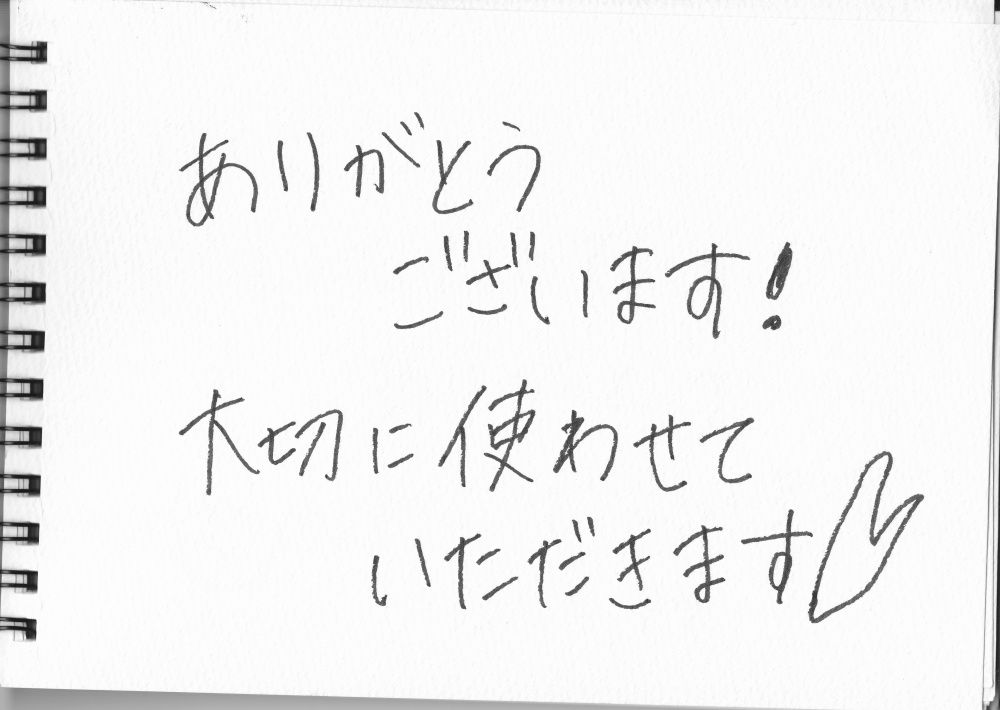 ありがとう
ございます!
大切に使わせて
いただきます